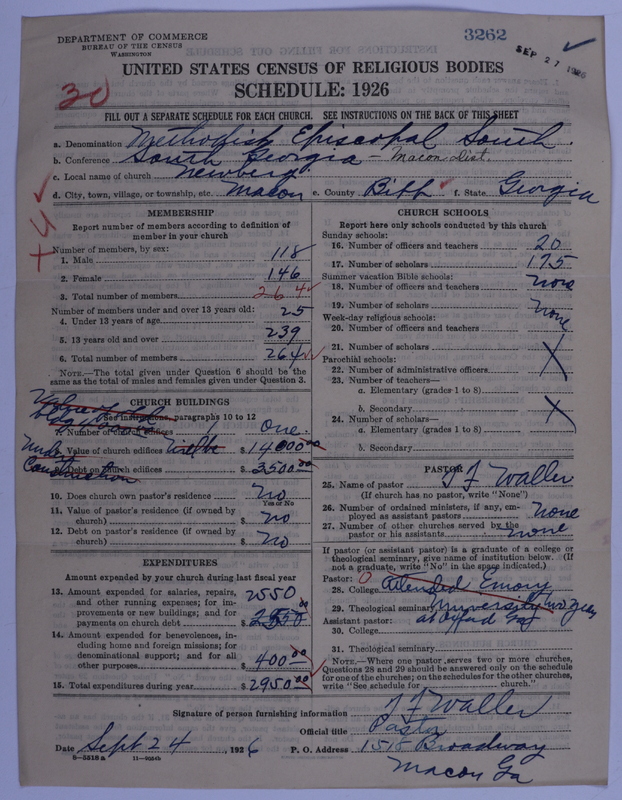 DEPARTMENT OF COMMERCE
BUREAU OF THE CENSUS
WASHINGTON
3262
SEP 27 1926
UNITED STATES CENSUS OF RELIGIOUS BODIES
SCHEDULE: 1926
30
FILL OUT A SEPARATE SCHEDULE FOR EACH CHURCH. SEE INSTRUCTIONS ON THE BACK OF THIS SHEET
a. Denomination Methodist Episcopal South
b. Conference South Georgia - Macon Dist.
c. Local name of church Newberg
d. City, town, village, or township, etc. Macon e. County Bibb f. State Georgia
MEMBERSHIP
Report number of members according to definition of
member in your church
Number of members, by sex:
1. Male 118
2. Female 146
3. Total number of members 264
Number of members under and over 13 years old:
4. Under 13 years of age 25
5. 13 years old and over 239
6. Total number of members 264
NOTE.—The total given under Question 6 should be
the same as the total of males and females given under Question 3.
CHURCH BUILDINGS
See instructions, paragraphs 10 to 12
7. Number of church edifices 1 One
8. Value of church edifices $ 14000.00
9. Debt on church edifices $ 3500.00
Under
Construction
10. Does church own pastor's residence No
Yes or No
11. Value of pastor's residence (if owned by
church) $ No
12. Debt on pastor's residence (if owned by
church) $ No
EXPENDITURES
Amount expended by your church during last fiscal year
13. Amount expended for salaries, repairs,
and other running expenses; for im-
provements or new buildings; and for
payments on church debt 2550 $ 2550.00
14. Amount expended for benevolences, in-
cluding home and foreign missions; for
denominational support; and for all
other purposes $ 400.00
15. Total expenditures during year $ 2950.00
CHURCH SCHOOLS
Report here only schools conducted by this church
Sunday schools:
16. Number of officers and teachers 20
17. Number of scholars 175
Summer vacation Bible schools:
18. Number of officers and teachers none
19. Number of scholars none
Week-day religious schools:
20. Number of officers and teachers
21. Number of scholars
Parochial schools:
22. Number of administrative officers
23. Number of teachers—
a. Elementary (grades 1 to 8)
b. Secondary
24. Number of scholars—
a. Elementary (grades 1 to 8)
b. Secondary
PASTOR
25. Name of pastor T F Waller
(If church has no pastor, write "None")
26. Number of ordained ministers, if any, em-
ployed as assistant pastors none
27. Number of other churches served by the
pastor or his assistants none
If pastor (or assistant pastor) is a graduate of a college or
theological seminary, give name of institution below. (If
not a graduate, write "No" in the space indicated.)
Pastor: 0
28. College Attended Emory
29. Theological seminary University two years
Assistant pastor: at Oxford Ga
30. College
31. Theological seminary
NOTE.—Where one pastor serves two or more churches,
Questions 28 and 29 should be answered only on the schedule
for one of the churches; on the schedules for the other churches,
write "See schedule for church."
Signature of person furnishing information T F Waller
Official title Pastor
Date Sept 24, 1926 P. O. Address 1518 Broadway
Macon Ga
8—5518a 11—9054b